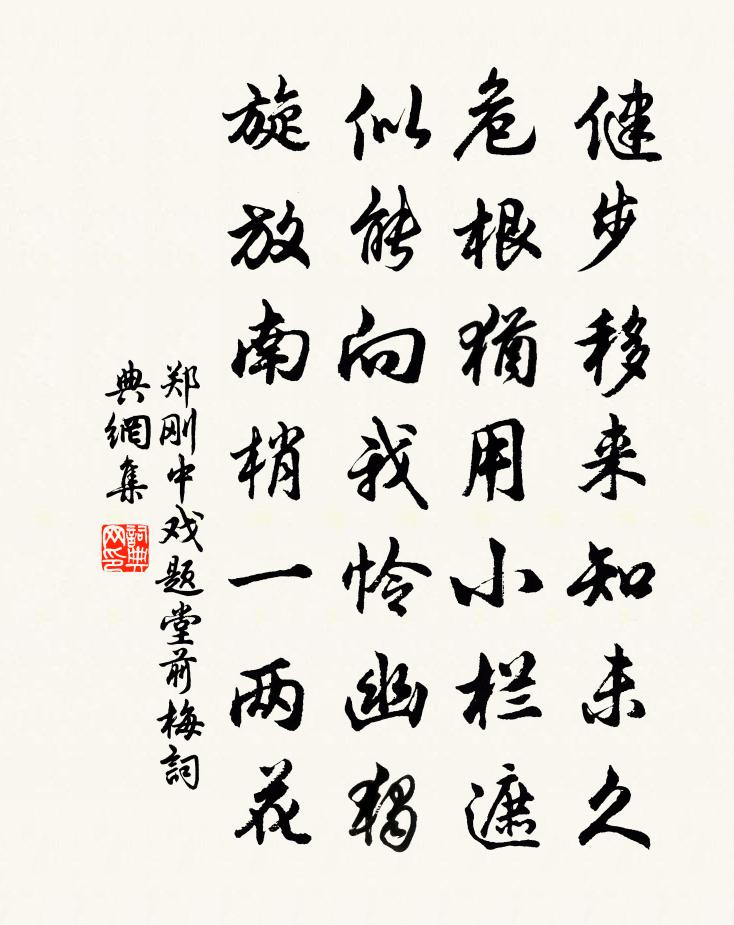 健步移来知未久
危根犹用小栏遮
似能向我怜幽獨
旋放南梢一两花
郑刚中戏题堂前梅詞
典網集
詞典
网印